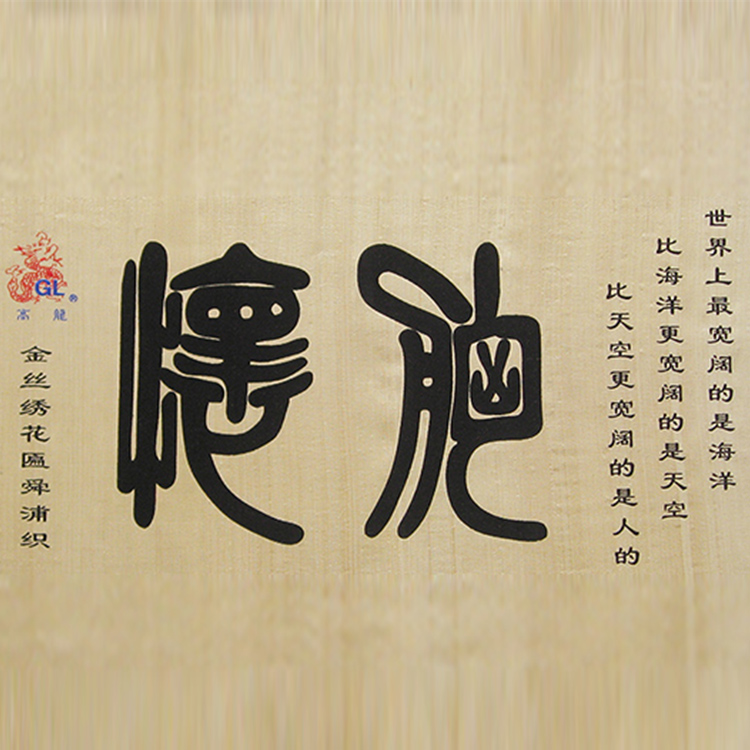 世界上最宽阔的是海洋
比海洋更宽阔的是天空
比天空更宽阔的是人的
胸懷
GL®
高龍
金丝绣花匾舜浦织